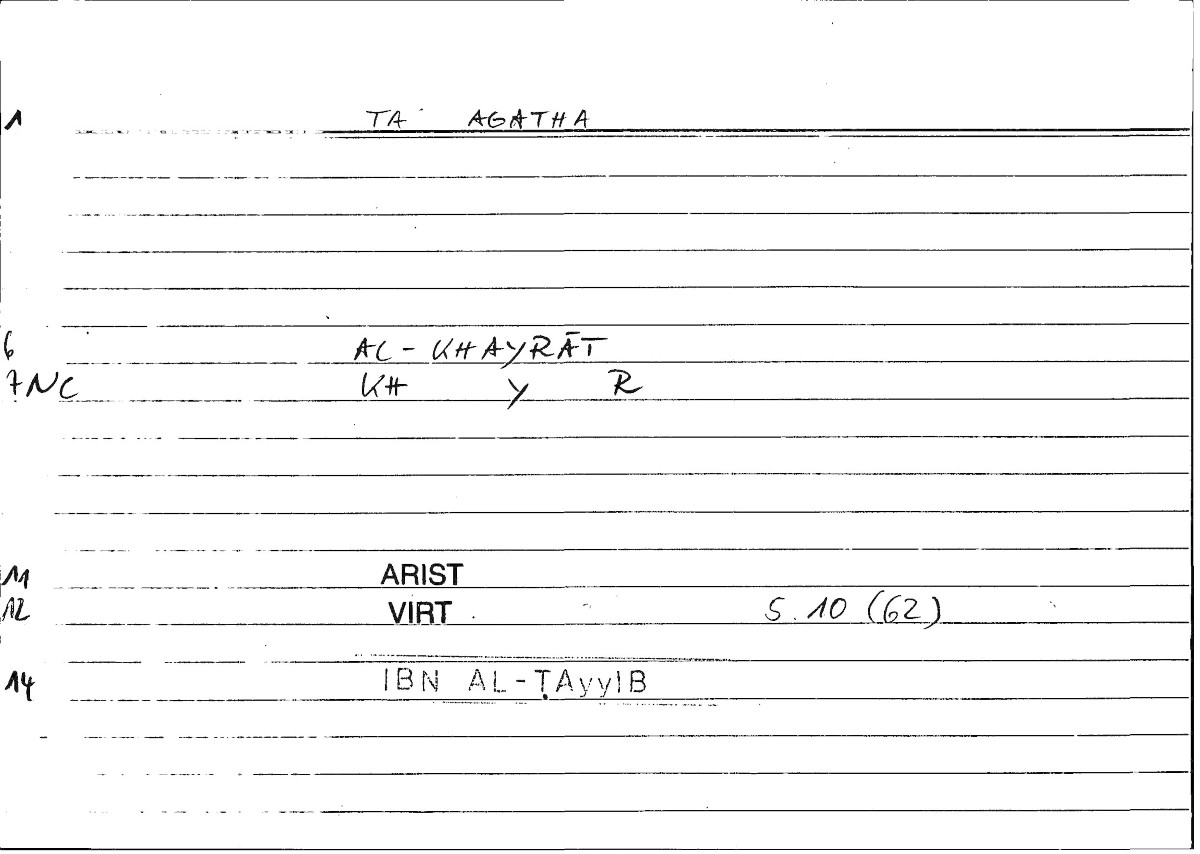 1 TA AGATHA
6 AL-KHAYRĀT
7NC KH Y R
11 ARIST
12 VIRT S.10 (62)
14 IBN AL-ṬAyyIB